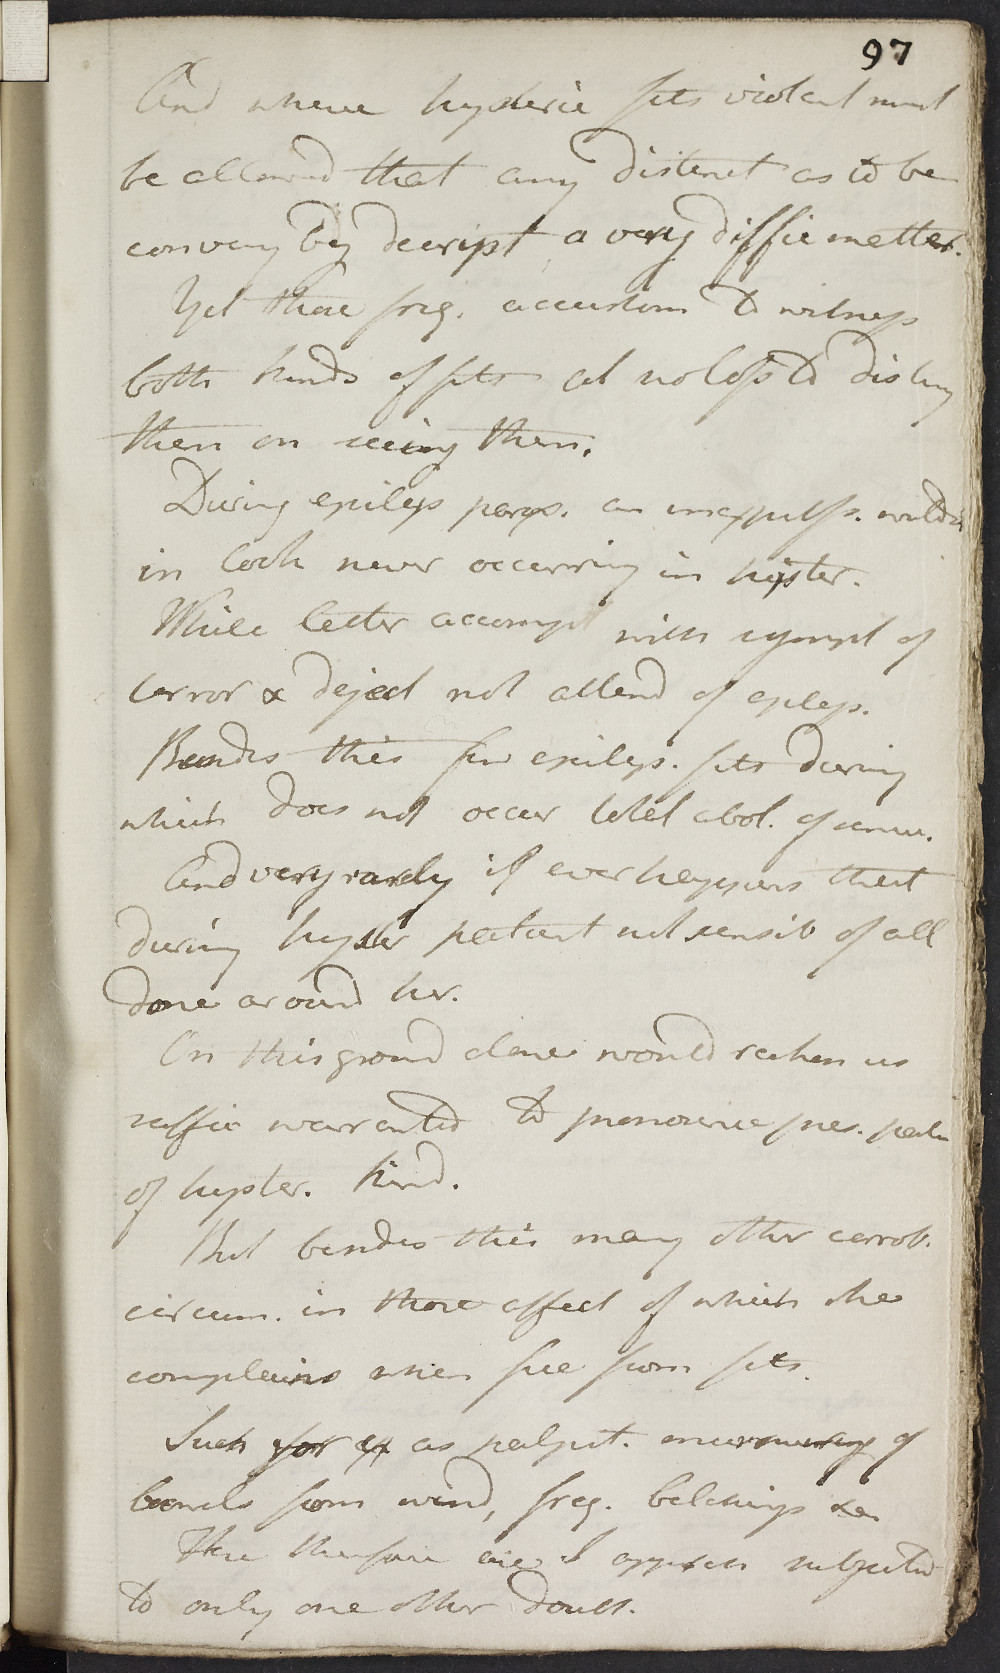 97
And where hysteric fits violent must
be allowed that any distinct as to be
convey by descript a very diffic matter.
Yet those freq. accustom to witness
both kinds of fits at no loss to disting
them on seeing them.
During epileps parox. an inexpress. wildn
in look never occurring in hyster.
While latter accompt with sympt of
terror & deject not attend of epileps.
Besides this few epileps. fits during
which does not occur total abol. of sense.
And very rarely if ever happens that
during hyster patient not sensib of all
done around her.
On this ground alone would reckon us
suffic warranted to pronounce pres. patn
of hyster. kind.
But besides this many other corrob.
circum. in those affect of which she
complains when free from fits.
Such for ex as palpit. murmuring of
bowels from wind, freq. belchings &c
Here therefore are I appreh subjected
to only one other doubt.